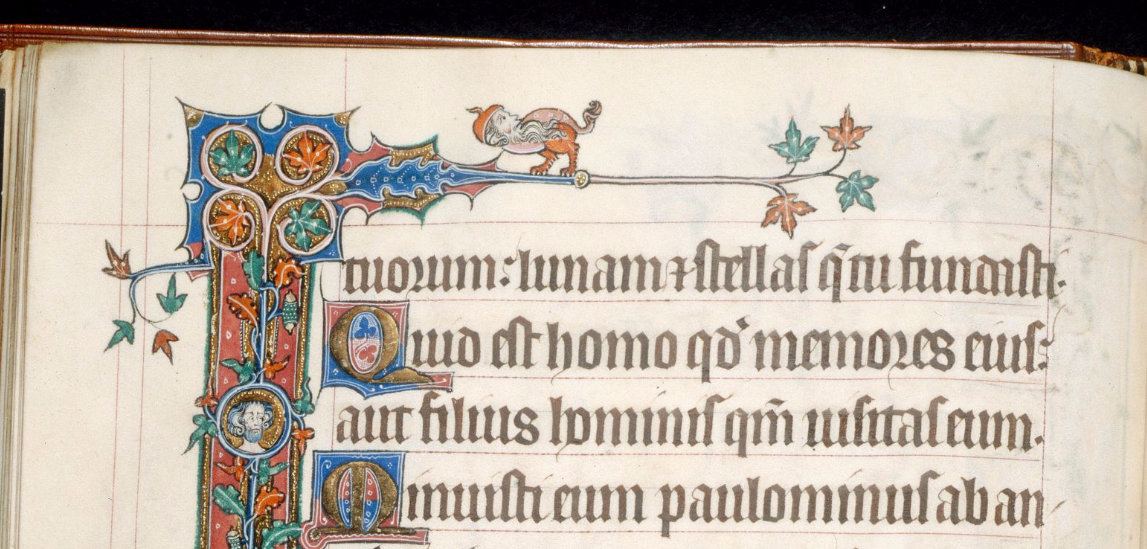 tuorum: lunam ⁊ stellas q̄ tu fundasti.
Quid est homo qd̓ memores eius:
aut filius hominis qm̄ uisitas eum.
Minuisti eum paulominus ab an